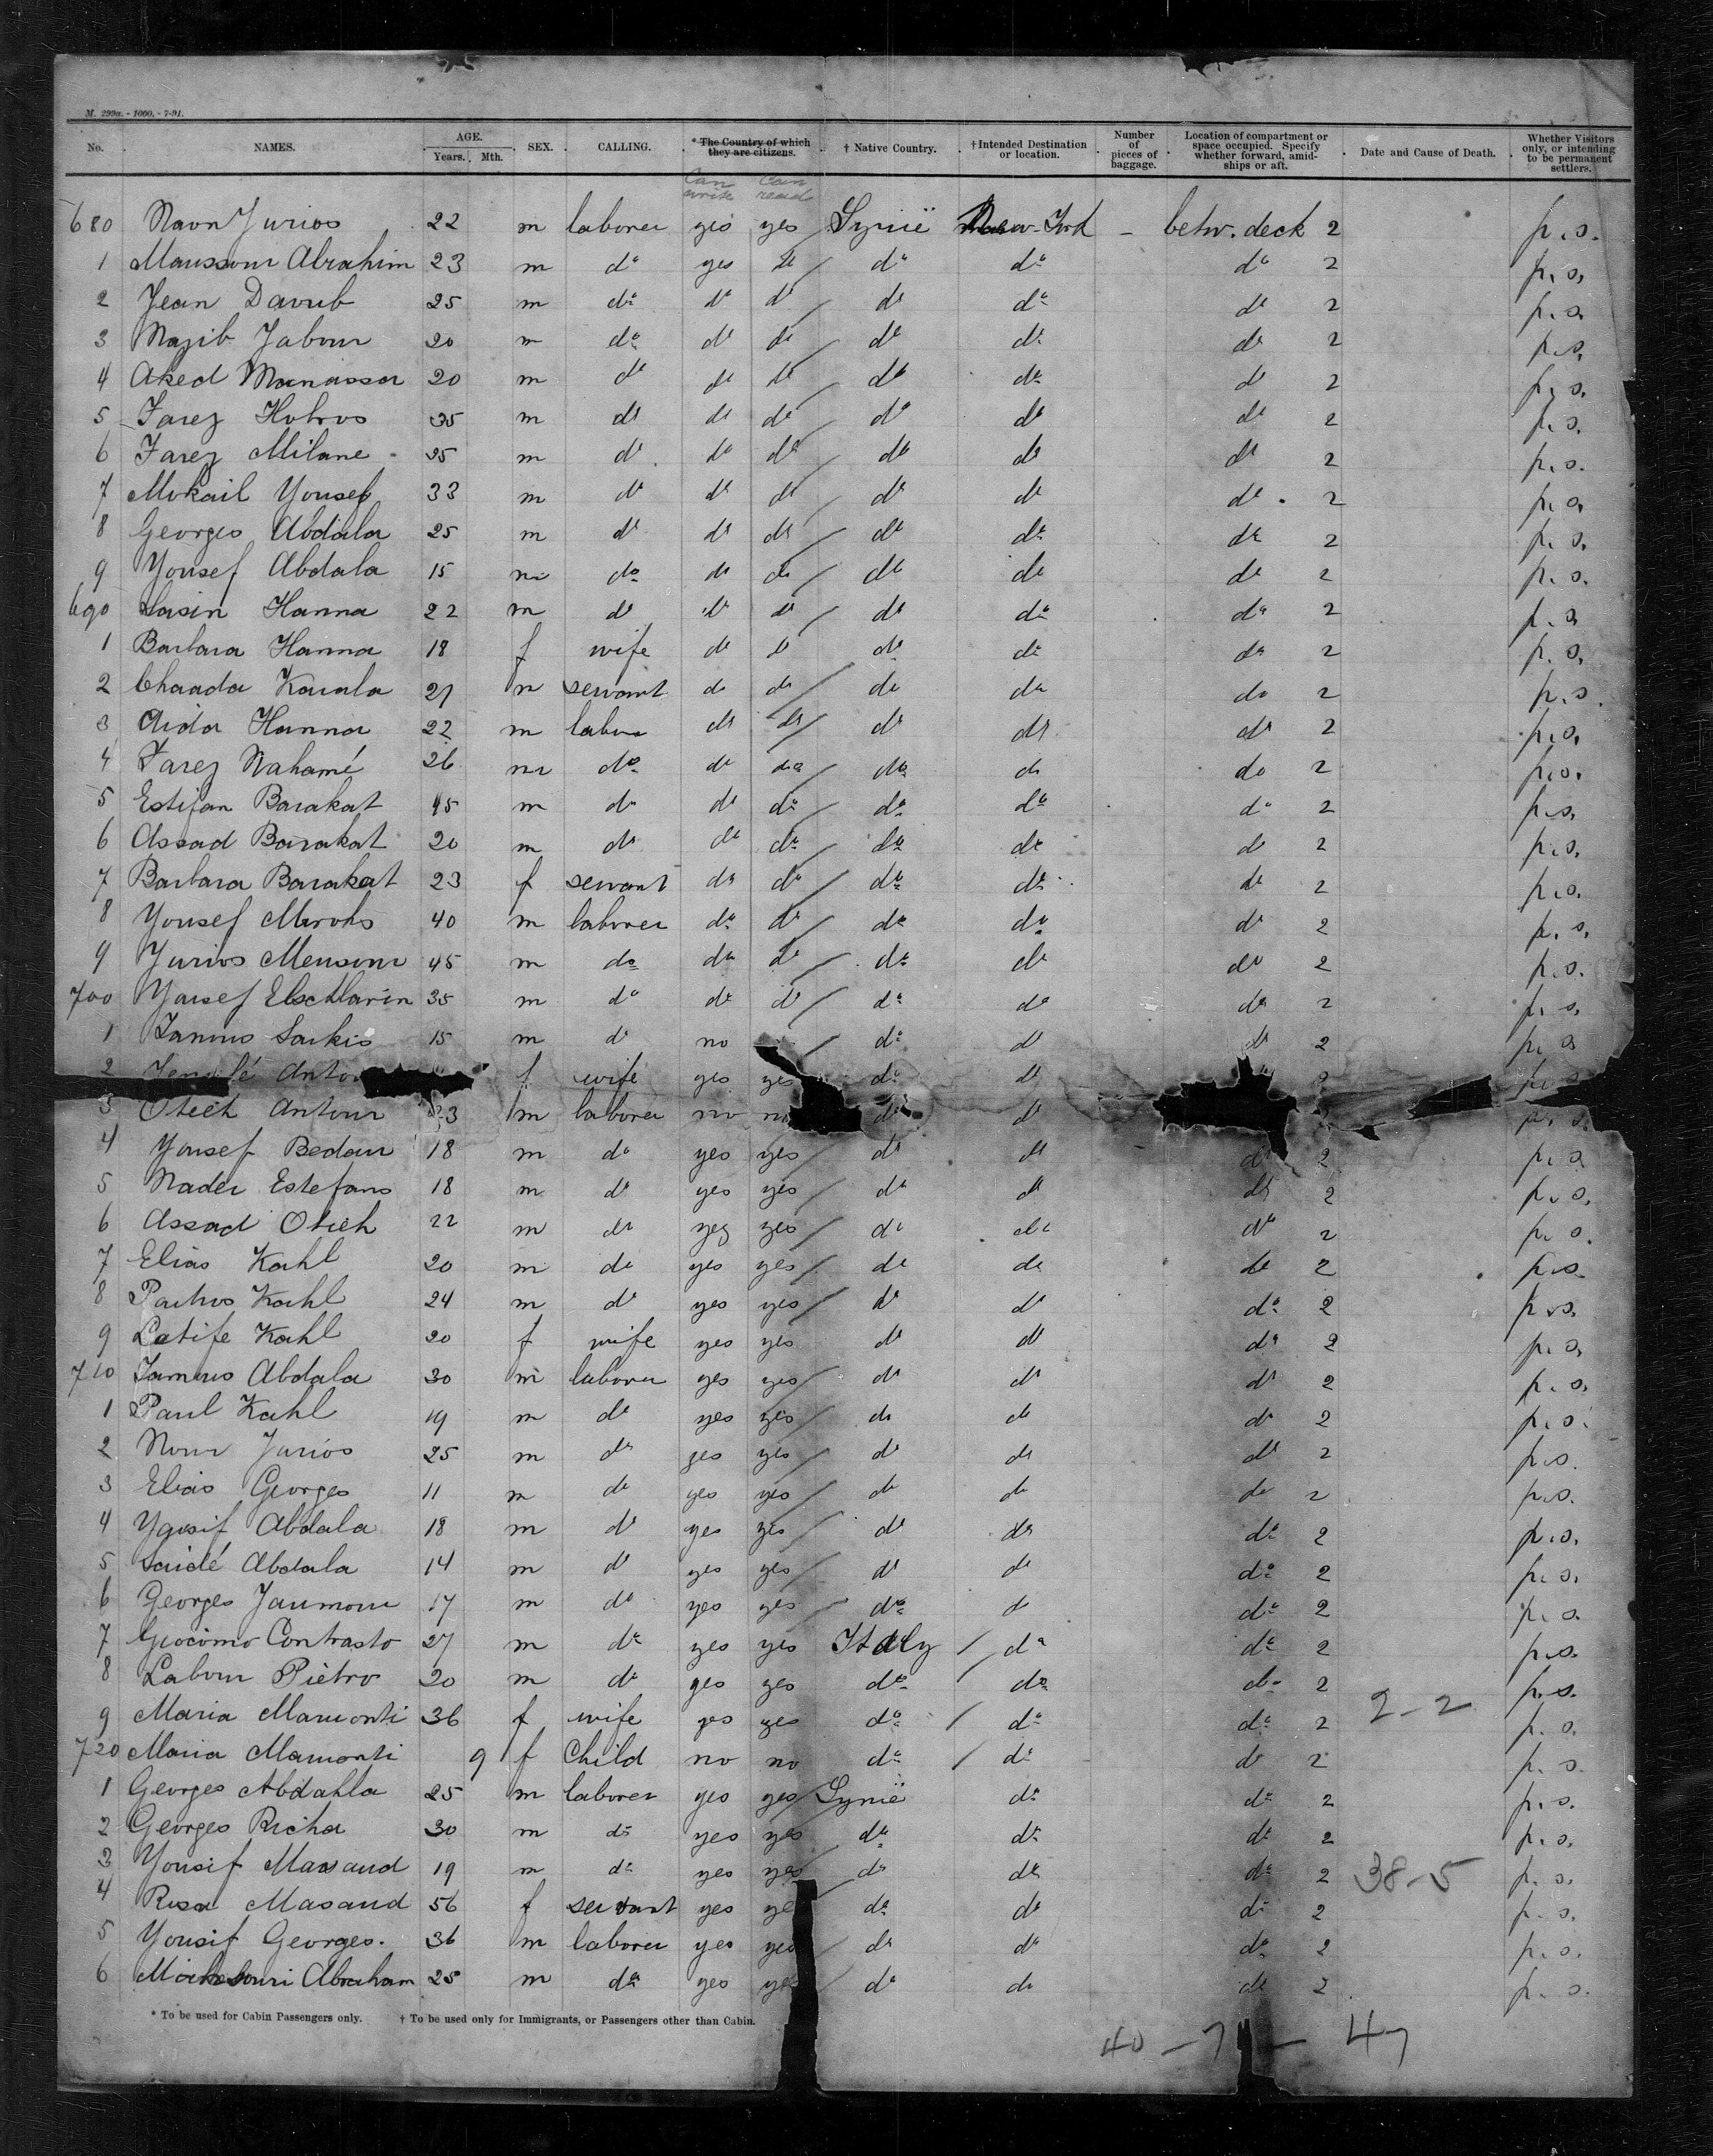 M. 299a. - 1000. - 7-91.
No. NAMES. AGE. Years. Mth. SEX. CALLING. * The Country of which they are citizens. † Native Country. † Intended Destination or location. Number of pieces of baggage. Location of compartment or space occupied. Specify whether forward, amidships or aft. Date and Cause of Death. Whether Visitors only, or intending to be permanent settlers.
Can write Can read
680 Naon Jurios 22 m laborer yes yes Syrië New-York - betw. deck 2 p.s.
1 Manssour Abrahim 23 m do yes do do do do 2 p.s.
2 Jean Davub 25 m do do do do do do 2 p.s.
3 Nazib Jabour 20 m do do do do do do 2 p.s.
4 Aked Manassa 20 m do do do do do do 2 p.s.
5 Farez Hobros 35 m do do do do do do 2 p.s.
6 Farez Milane 25 m do do do do do do 2 p.s.
7 Mokail Yousef 33 m do do do do do do 2 p.s.
8 Georges Abdala 25 m do do do do do do 2 p.s.
9 Yousef Abdala 15 m do do do do do do 2 p.s.
690 Sasin Hanna 22 m do do do do do do 2 p.s.
1 Barbara Hanna 18 f wife do do do do do 2 p.s.
2 Chaada Karala 21 m servant do do do do do 2 p.s.
3 Aida Hanna 22 m labor do do do do do 2 p.s.
4 Farez Nahamé 26 m do do do do do do 2 p.s.
5 Estifan Barakat 45 m do do do do do do 2 p.s.
6 Assad Barakat 20 m do do do do do do 2 p.s.
7 Barbara Barakat 23 f servant do do do do do 2 p.s.
8 Yousef Miroks 40 m laborer do do do do do 2 p.s.
9 Jurios Mensour 45 m do do do do do do 2 p.s.
700 Yousef 35 m do do do do do do 2 p.s.
1 Tannus Sarkis 15 m do no do do do 2 p.s.
2 f wife yes yes do do 2 p.s.
3 Otieh Antour m laborer no no do do p.s.
4 Yousef Bedour 18 m do yes yes do do do 2 p.s.
5 Nader Estefano 18 m do yes yes do do do 2 p.s.
6 Assad Otieh 22 m do yes yes do do do 2 p.s.
7 Elias Kahl 20 m do yes yes do do do 2 p.s.
8 Pachos Kahl 24 m do yes yes do do do 2 p.s.
9 Latife Kahl 20 f wife yes yes do do do 2 p.s.
710 Tannus Abdala 30 m laborer yes yes do do do 2 p.s.
1 Paul Kahl 19 m do yes yes do do do 2 p.s.
2 Nour Jurios 25 m do yes yes do do do 2 p.s.
3 Elias Georges 11 m do yes yes do do do 2 p.s.
4 Yousif Abdala 18 m do yes yes do do do 2 p.s.
5 Saidé Abdala 14 m do yes yes do do do 2 p.s.
6 Georges Jammour 17 m do yes yes do do do 2 p.s.
7 Giocomo Contrasto 27 m do yes yes Italy do do 2 p.s.
8 Labour Piètro 20 m do yes yes do do do 2 p.s.
9 Maria Mamonti 36 f wife yes yes do do do 2 2-2 p.s.
720 Maria Mamonti 9 f Child no no do do do 2 p.s.
1 Georges Abdahla 25 m laborer yes yes Syrië do do 2 p.s.
2 Georges Richa 30 m do yes yes do do do 2 p.s.
3 Yousif Masaud 19 m do yes yes do do do 2 38-5 p.s.
4 Rosa Masaud 56 f servant yes yes do do do 2 p.s.
5 Yousif Georges. 36 m laborer yes yes do do do 2 p.s.
6 Abraham 25 m do yes yes do do do 2 p.s.
* To be used for Cabin Passengers only. † To be used only for Immigrants, or Passengers other than Cabin.
40 - 7 - 47